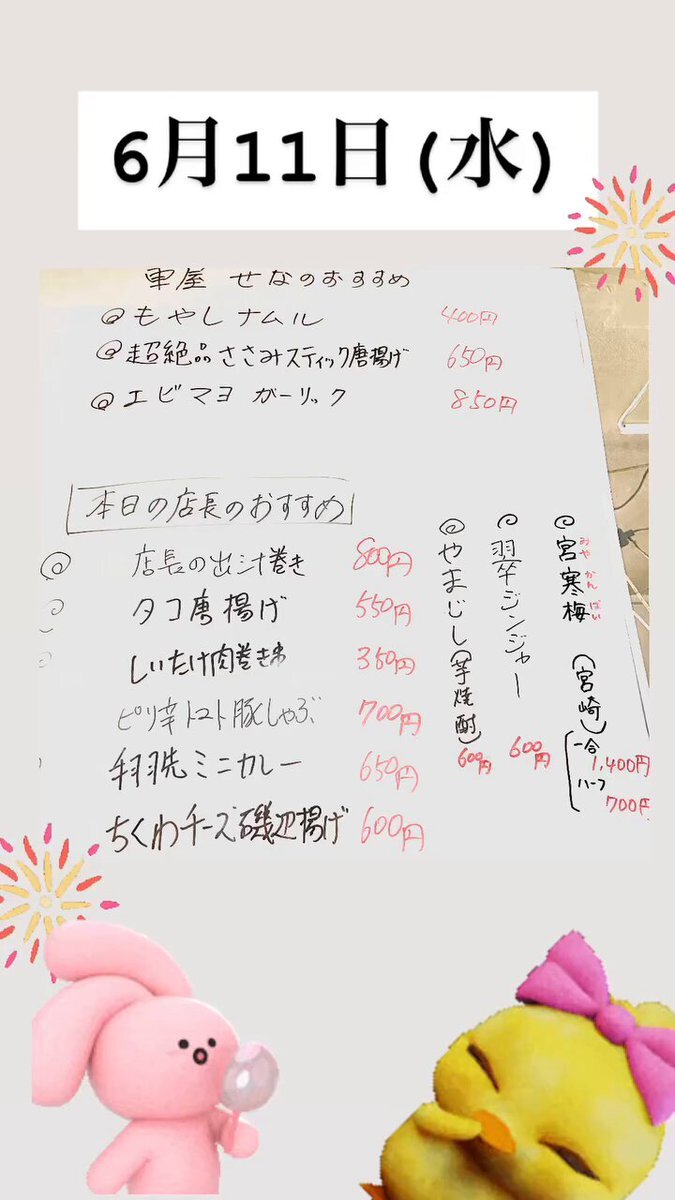 6月11日(水)
軍屋 せなのおすすめ
@もやしナムル 400円
@超絶品ささみスティック唐揚げ 650円
@エビマヨ ガーリック 850円
本日の店長のおすすめ
店長の出汁巻き 800円
タコ唐揚げ 550円
しいたけ肉巻き串 350円
ピリ辛トマト豚しゃぶ 700円
手羽先ミニカレー 650円
ちくわチーズ磯辺揚げ 600円
宮寒梅(宮崎)
みや かん ばい
一合 1,400円
ハーフ 700円
ジンジャー 600円
やまじし(芋焼酎) 600円